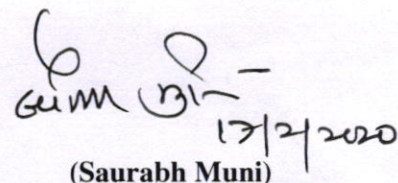 17/2/2020
(Saurabh Muni)